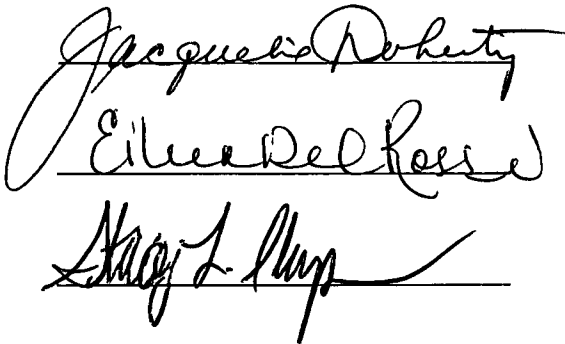 Jacqueline Doherty
Eileen Del Rosso
Stacy L.